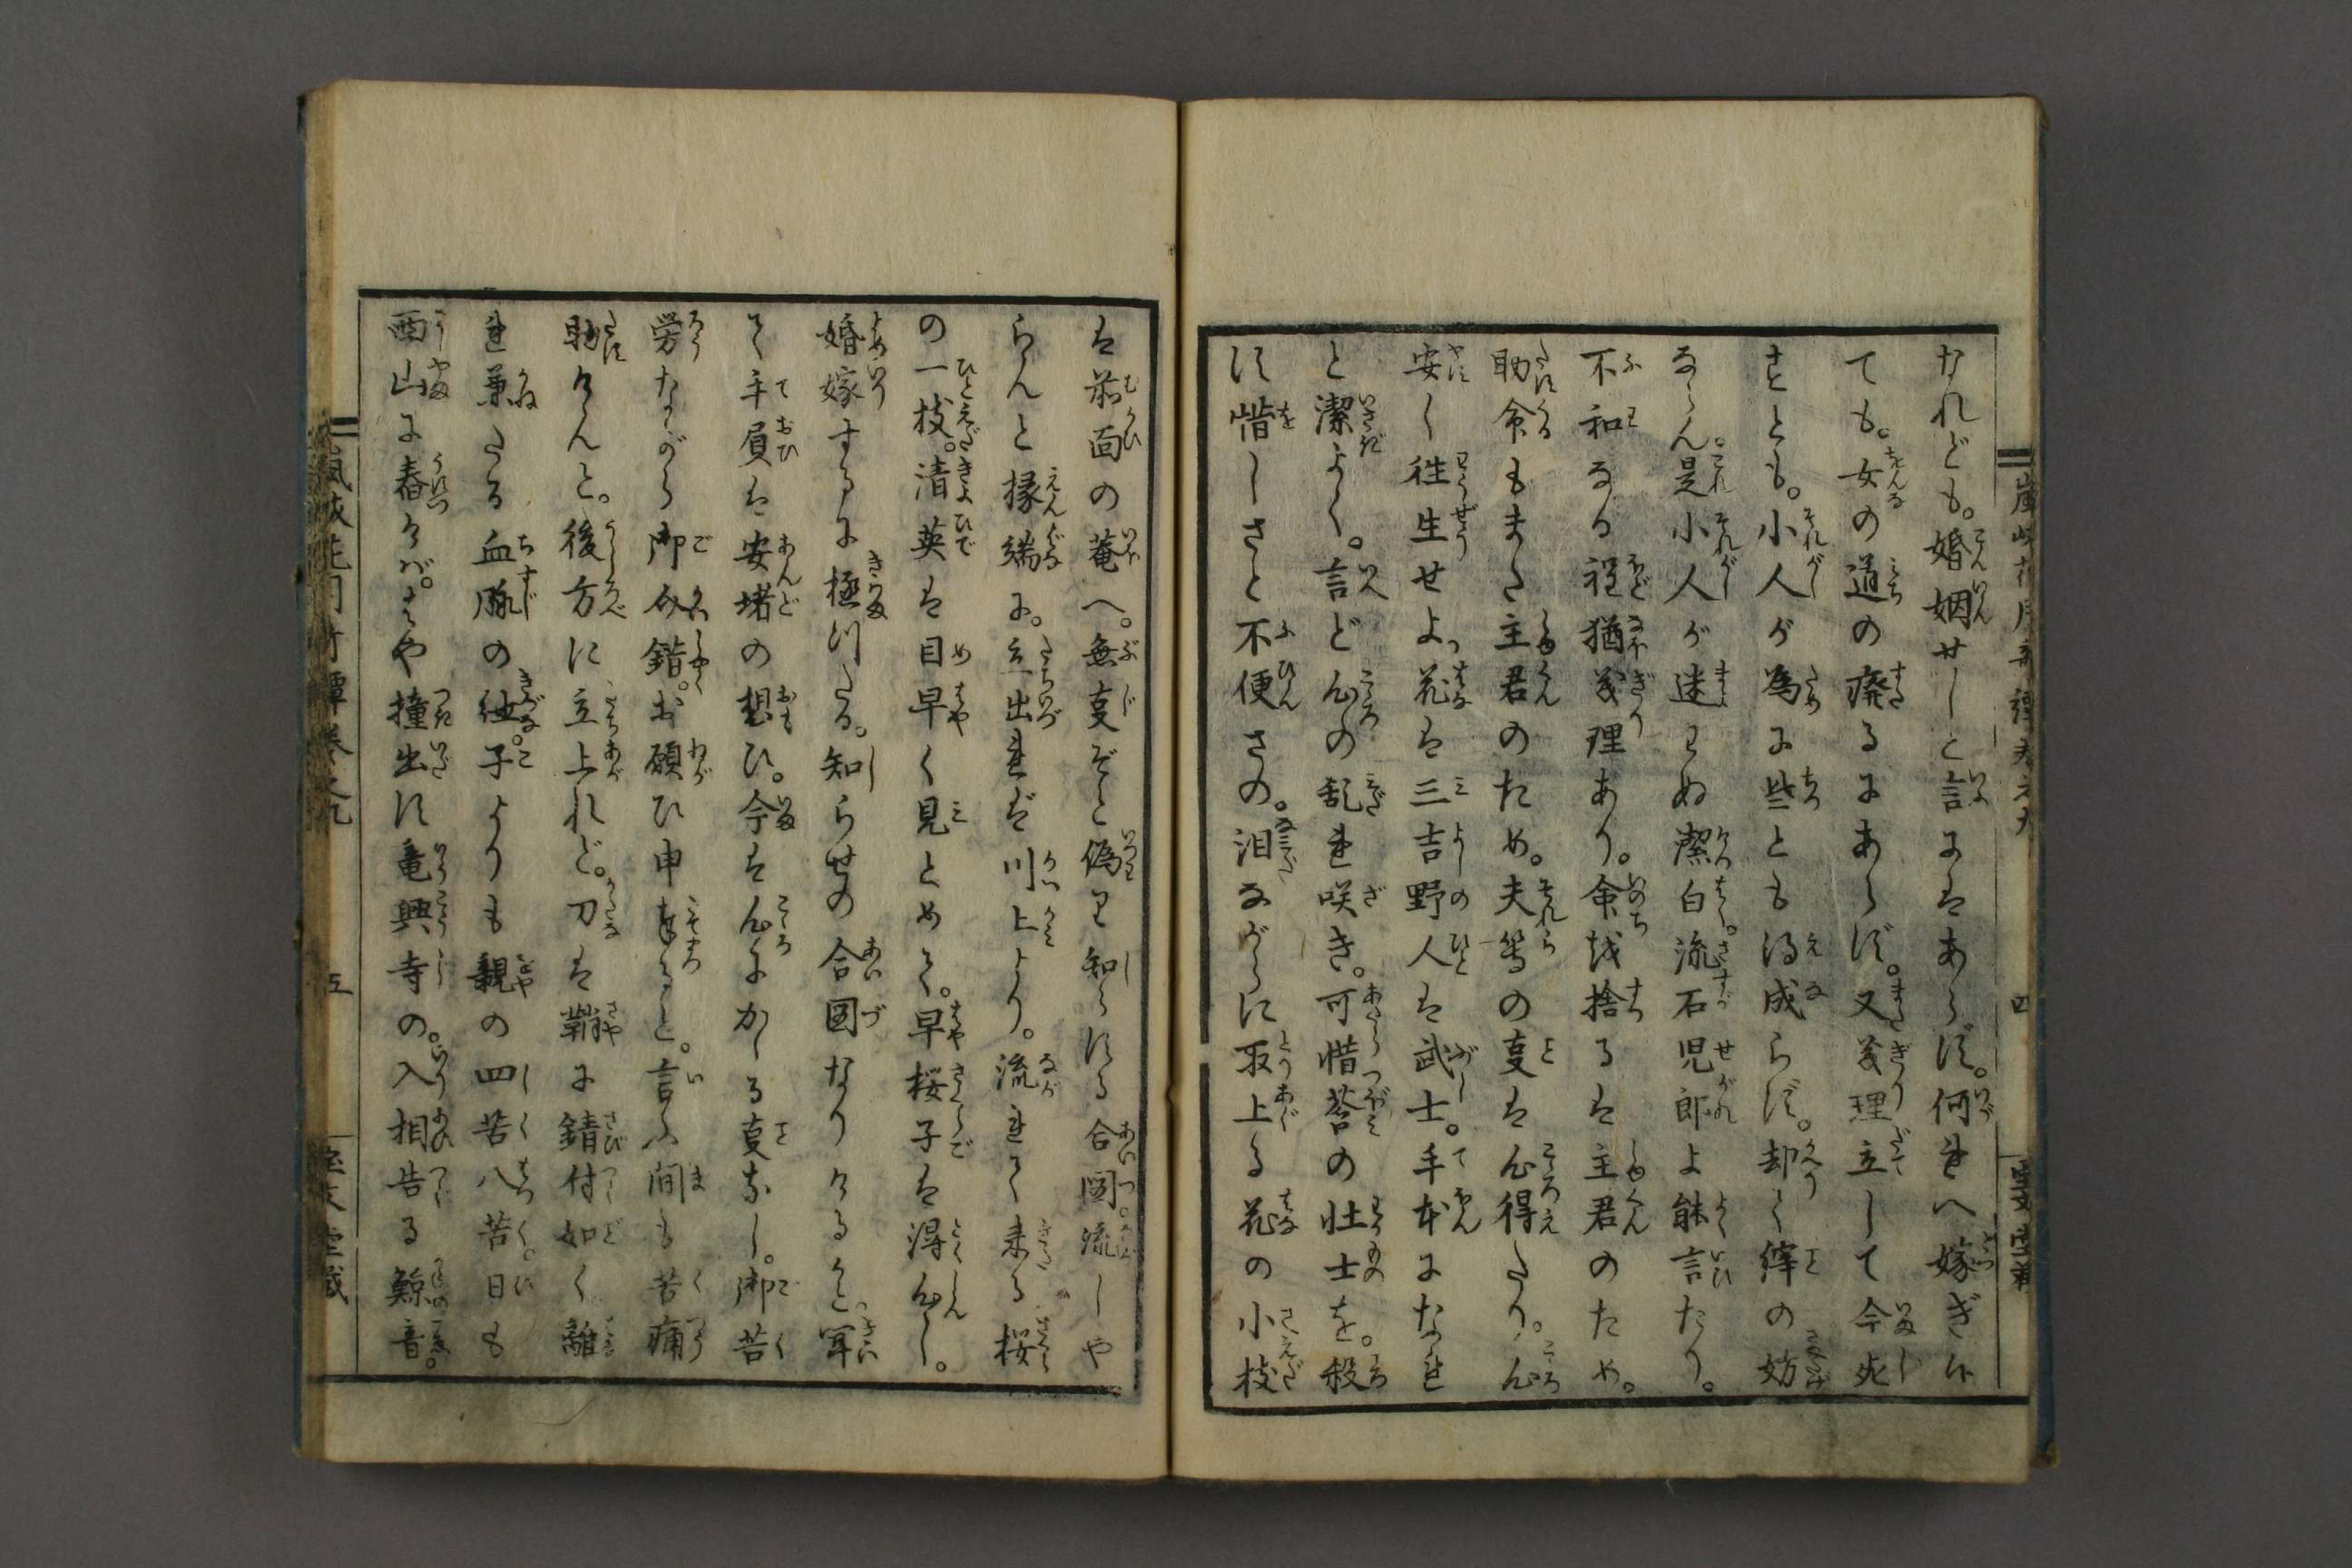 なれども。婚姻せしと言にはあらず。何れへ嫁ぎ候
ても。女の道の廃るにあらず。又義理立して今死
すとも。小人が為に些とも得成らず。却て縡の妨
ならん。是小人が迷はぬ潔白流石児郎よ能言たり。
不和なる程猶義理あり。命を捨るは主君のため。
助命もまた主君のため。夫等の事は心得たり。心
安く往生せよ。花は三吉野人は武士。手本になれ
と潔よく。言ど心の乱れ咲き。可惜莟の壮士を。殺
す惜しさと不便さの。泪ながらに取上る花の小枝
は前面の菴へ。無事ぞと偽り知らする合図。流しや
らんと縁端に。立出れば川上より。流れて来る桜
の一枝。清英は目早く見とめて。早桜子は得心し。
婚嫁するに極りたる。知らせの合図なりけるかと。聞
て手負は安堵の想ひ。今は心にかゝる事なし。御苦
労ながら御介錯。お願ひ申まするると。言ふ間も苦痛
助けんと。後方に立上れど。刀は鞘に錆付如く離
れ兼たる血脈の紲。子よりも親の四苦八苦。日も
西山に舂けば。はや撞出す竜興寺の。入相告る鯨音。
五